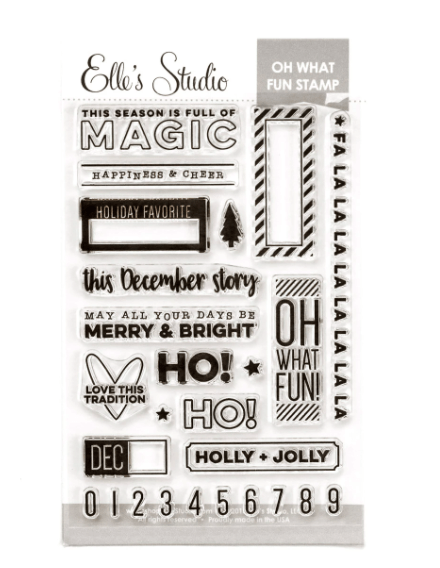 Elle's Studio
OH WHAT
FUN STAMP
THIS SEASON IS FULL OF
MAGIC
HAPPINESS & CHEER
HOLIDAY FAVORITE
this December story
MAY ALL YOUR DAYS BE
MERRY & BRIGHT
HO!
LOVE THIS
TRADITION
HO!
OH
WHAT
FUN!
FA LA LA LA LA LA LA LA LA
DEC
HOLLY + JOLLY
0 1 2 3 4 5 6 7 8 9
All rights reserved • Proudly made in the USA